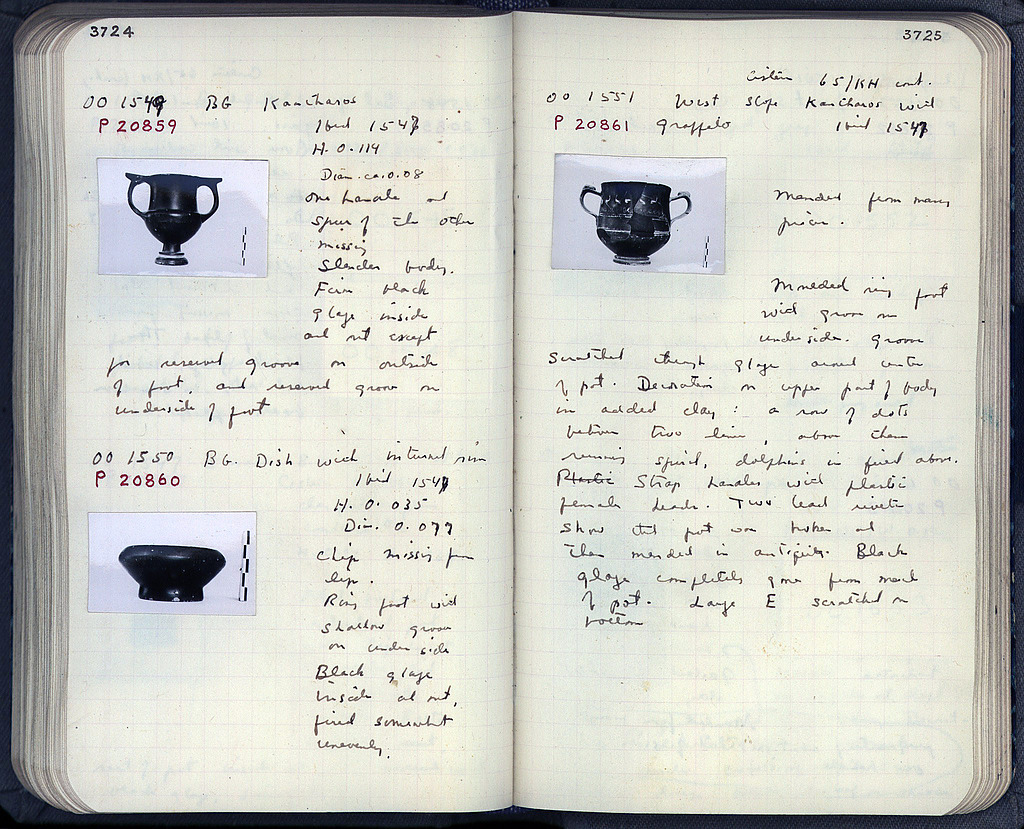 3724
OO 1549 BG Kantharos
P 20859 Ibid 1547
H. 0.114
Diam. ca. 0.08
One handle and
spur of the other
missing
Slender body.
Firm black
glaze inside
and out except
for reserved groove on outside
of foot, and reserved groove on
underside of foot
OO 1550 BG. Dish with inturned rim
P 20860 Ibid 1547
H. 0.035
Dim. 0.077
Chip missing from
lip.
Ring foot with
shallow groove
on under side
Black glaze
inside and out,
fired somewhat
unevenly.
3725
Cistern 65/KH cont.
OO 1551 West Slope Kantharos with
P 20861 graffito Ibid 1547
Mended from many
pieces.
Moulded ring foot
with groove on
underside. Groove
scratched through glaze around center
of pot. Decoration on upper part of body
in added clay: a row of dots
between two lines, above them
running spiral, dolphins in field above.
Plastic Strap handles with plastic
female heads. Two lead rivets
show that pot was broken and
then mended in antiquity. Black
glaze completely gone from most
of pot. Large E scratched on
bottom